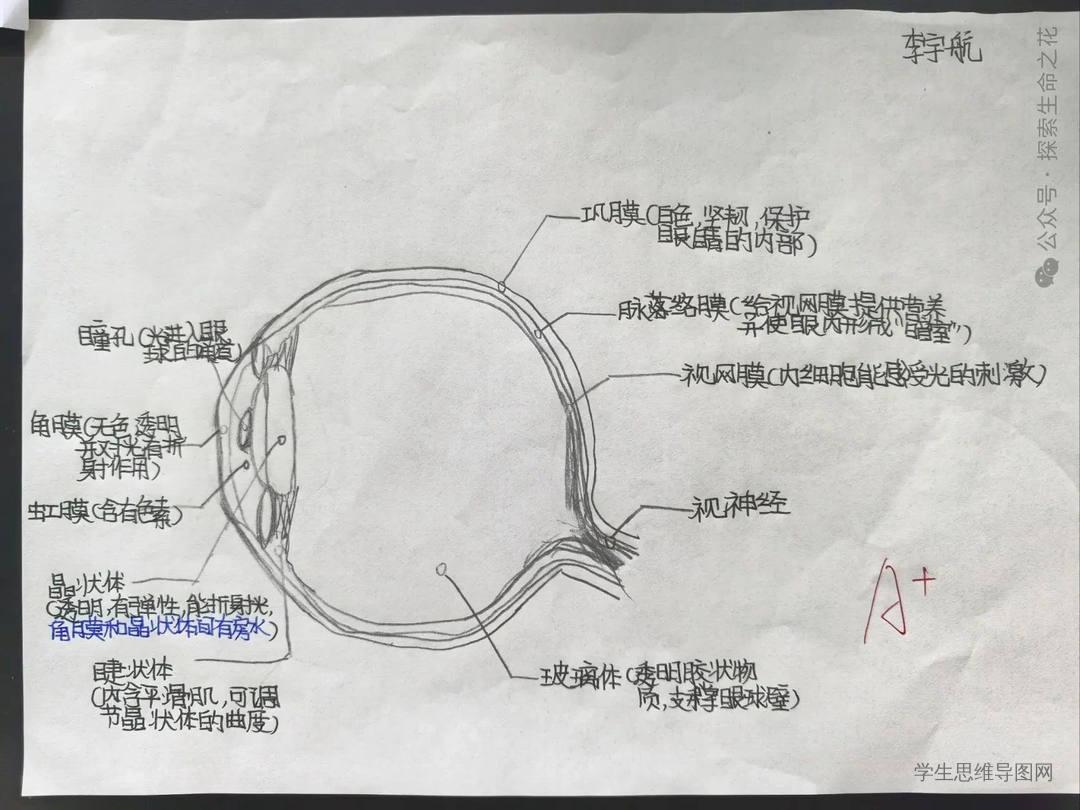 李宇航
巩膜(白色,坚韧,保护
眼睛的内部)
脉落络膜(给视网膜提供营养
并使眼内形成"暗室")
视网膜(内细胞能感受光的刺激)
视神经
玻璃体(透明胶状物
质,支撑眼球壁)
瞳孔(光进入眼
球的通道)
角膜(无色透明
并对光有折
射作用)
虹膜(含有色素)
晶状体
(透明,有弹性,能折射光,
角膜和晶状体间有房水)
睫状体
(内含平滑肌,可调
节晶状体的曲度)
A+
公众号·探索生命之花
学生思维导图网